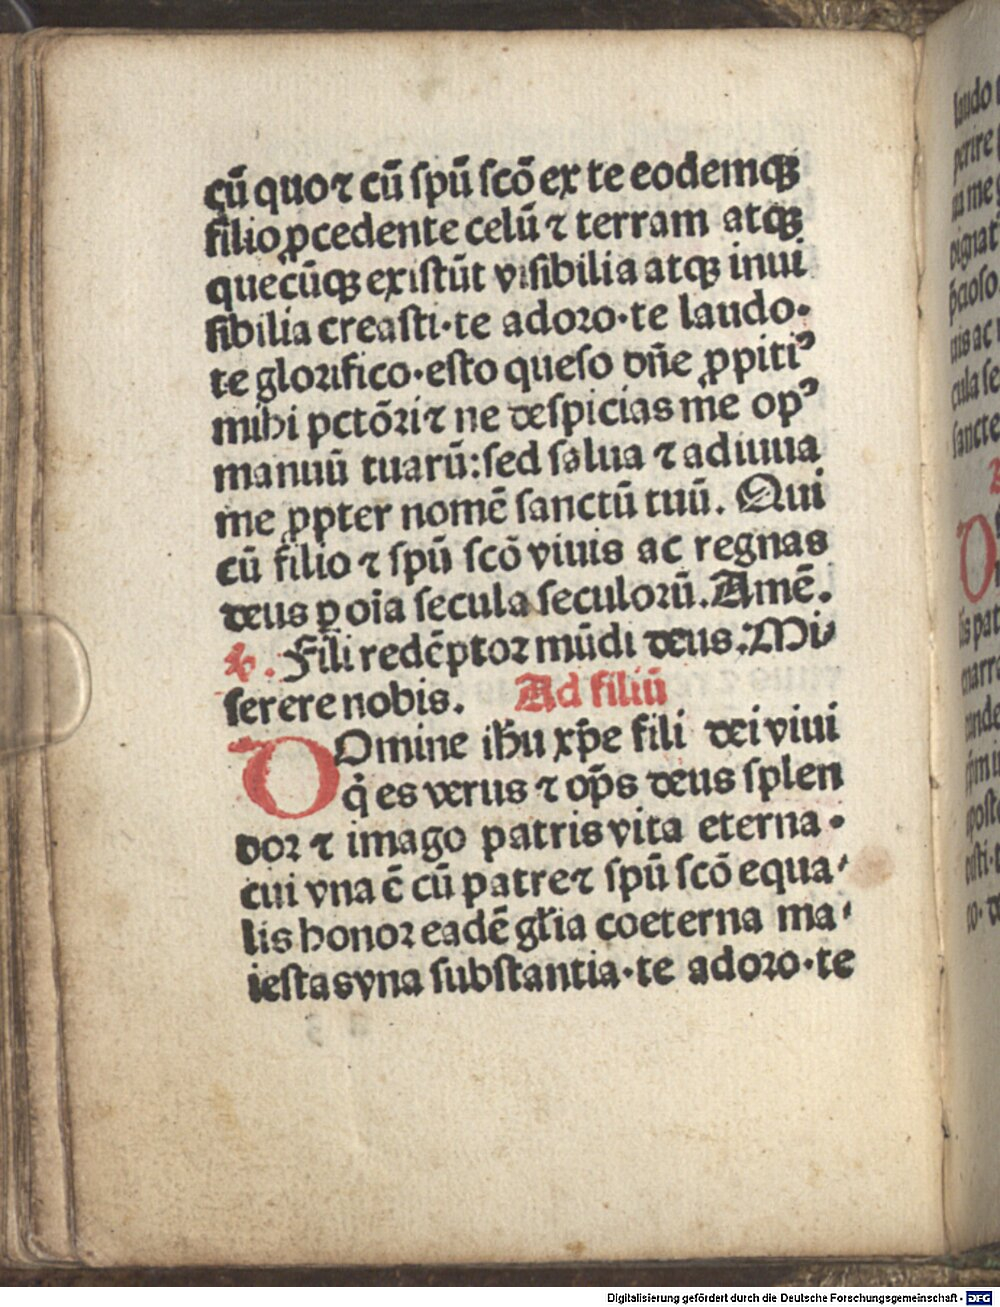 cū quo ⁊ cū ſpū ſcō ex te eodemqꝫ
filio ꝓcedente celū ⁊ terram atqꝫ
quecūqꝫ exiſtūt viſibilia atqꝫ inui
ſibilia creaſti·te adoꝛo·te laudo·
te gloꝛifico·eſto queſo dn̄e ꝓpitiꝰ
mihi pctōꝛi ⁊ ne deſpicias me opꝰ
manuū tuarū:ſed ſalua ⁊ adiuua
me ꝓpter nomē ſanctū tuū. Qui
cū filio ⁊ ſpū ſcō viuis ac regnas
deus ꝑ oīa ſecula ſeculoꝛū. Amē.
Fili redēptoꝛ mūdi deus. Mi⸗
ſerere nobis. Ad filiū
DOmine ih̄u xp̄e fili dei viui
q̇ es verus ⁊ op̄s deus ſplen
doꝛ ⁊ imago patris vita eterna·
cui vna ē cū patre ⁊ ſpū ſcō equa⸗
lis honoꝛ eadē gl̄ia coeterna ma⸗
ieſtas vna ſubſtantia·te adoꝛo·te
laudo
perire
na me
pignat
p̄cioſo
uis ac
cula ſe
ſancte
lis pat
Digitalisierung gefördert durch die Deutsche Forschungsgemeinschaft - DFG